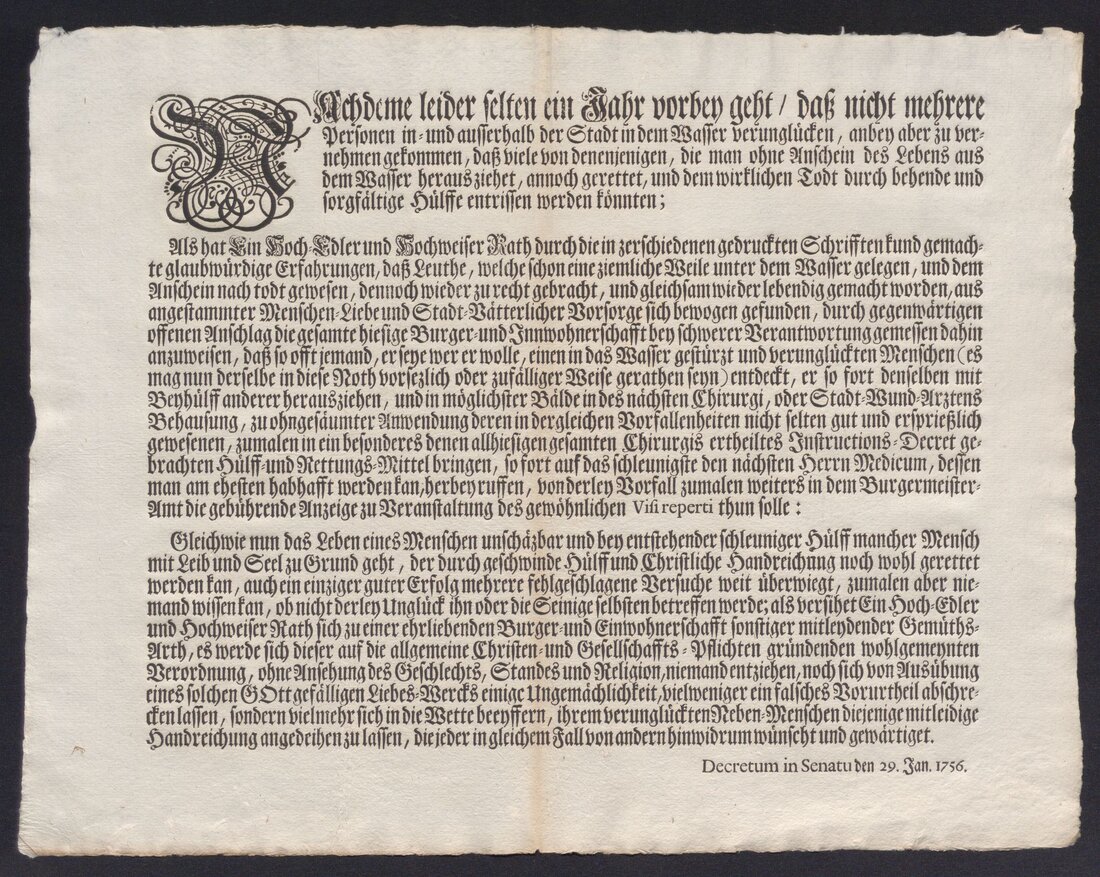 NAchdeme leider selten ein Jahr vorbey geht / daß nicht mehrere
Personen in- und ausserhalb der Stadt in dem Wasser verunglücken, anbey aber zu ver-
nehmen gekommen, daß viele von denenjenigen, die man ohne Anschein des Lebens aus
dem Wasser heraus ziehet, annoch gerettet, und dem wirklichen Todt durch behende und
sorgfältige Hülffe entrissen werden könnten;
Als hat Ein Hoch-Edler und Hochweiser Rath durch die in zerschiedenen gedruckten Schrifften kund gemach-
te glaubwürdige Erfahrungen, daß Leuthe, welche schon eine ziemliche Weile unter dem Wasser gelegen, und dem
Anschein nach todt gewesen, dennoch wieder zu recht gebracht, und gleichsam wieder lebendig gemacht worden, aus
angestammter Menschen-Liebe und Stadt-Vätterlicher Vorsorge sich bewogen gefunden, durch gegenwärtigen
offenen Anschlag die gesamte hiesige Burger- und Innwohnerschafft bey schwerer Verantwortung gemessen dahin
anzuweisen, daß so offt jemand, er seye wer er wolle, einen in das Wasser gestürzt und verunglückten Menschen (es
mag nun derselbe in diese Noth vorsezlich oder zufälliger Weise gerathen seyn) entdeckt, er so fort denselben mit
Beyhülff anderer herausziehen, und in möglichster Bälde in des nächsten Chirurgi, oder Stadt-Wund-Arztens
Behausung, zu ohngesäumter Anwendung deren in dergleichen Vorfallenheiten nicht selten gut und ersprießlich
gewesenen, zumalen in ein besonderes denen allhiesigen gesamten Chirurgis ertheiltes Instructions-Decret ge-
brachten Hülff- und Rettungs-Mittel bringen, so fort auf das schleunigste den nächsten Herrn Medicum, dessen
man am ehesten habhafft werden kan, herbey ruffen, von derley Vorfall zumalen weiters in dem Burgermeister-
Amt die gebührende Anzeige zu Veranstaltung des gewöhnlichen Visi reperti thun solle:
Gleichwie nun das Leben eines Menschen unschäzbar und bey entstehender schleuniger Hülff mancher Mensch
mit Leib und Seel zu Grund geht, der durch geschwinde Hülff und Christliche Handreichnug noch wohl gerettet
werden kan, auch ein einziger guter Erfolg mehrere fehlgeschlagene Versuche weit überwiegt, zumalen aber nie-
mand wissen kan, ob nicht derley Unglück ihn oder die Seinige selbsten betreffen werde; als versihet Ein Hoch-Edler
und Hochweiser Rath sich zu einer ehrliebenden Burger- und Einwohnerschafft sonstiger mitleydender Gemüths-
Arth, es werde sich dieser auf die allgemeine Christen- und Gesellschaffts-Pflichten gründenden wohlgemeynten
Verordnung, ohne Ansehung des Geschlechts, Standes und Religion, niemand entziehen, noch sich von Ausübung
eines solchen GOtt gefälligen Liebes-Wercks einige Ungemächlichkeit, vielweniger ein falsches Vorurtheil abschre-
cken lassen, sondern vielmehr sich in die Wette beeyffern, ihrem verunglückten Neben-Menschen diejenige mitleidige
Handreichung angedeihen zu lassen, die jeder in gleichem Fall von andern hinwidrum wünscht und gewärtiget.
Decretum in Senatu den 29. Jan. 1756.